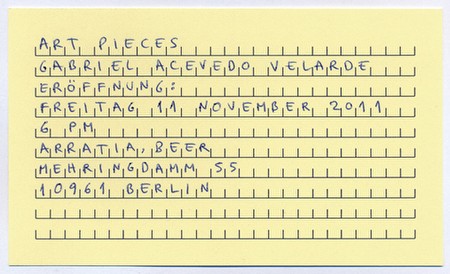 ART PIECES
GABRIEL ACEVEDO VELARDE
ERÖFFNUNG:
FREITAG 11 NOVEMBER 2011
6 PM
ARRATIA, BEER
MEHRINGDAMM 55
10961 BERLIN